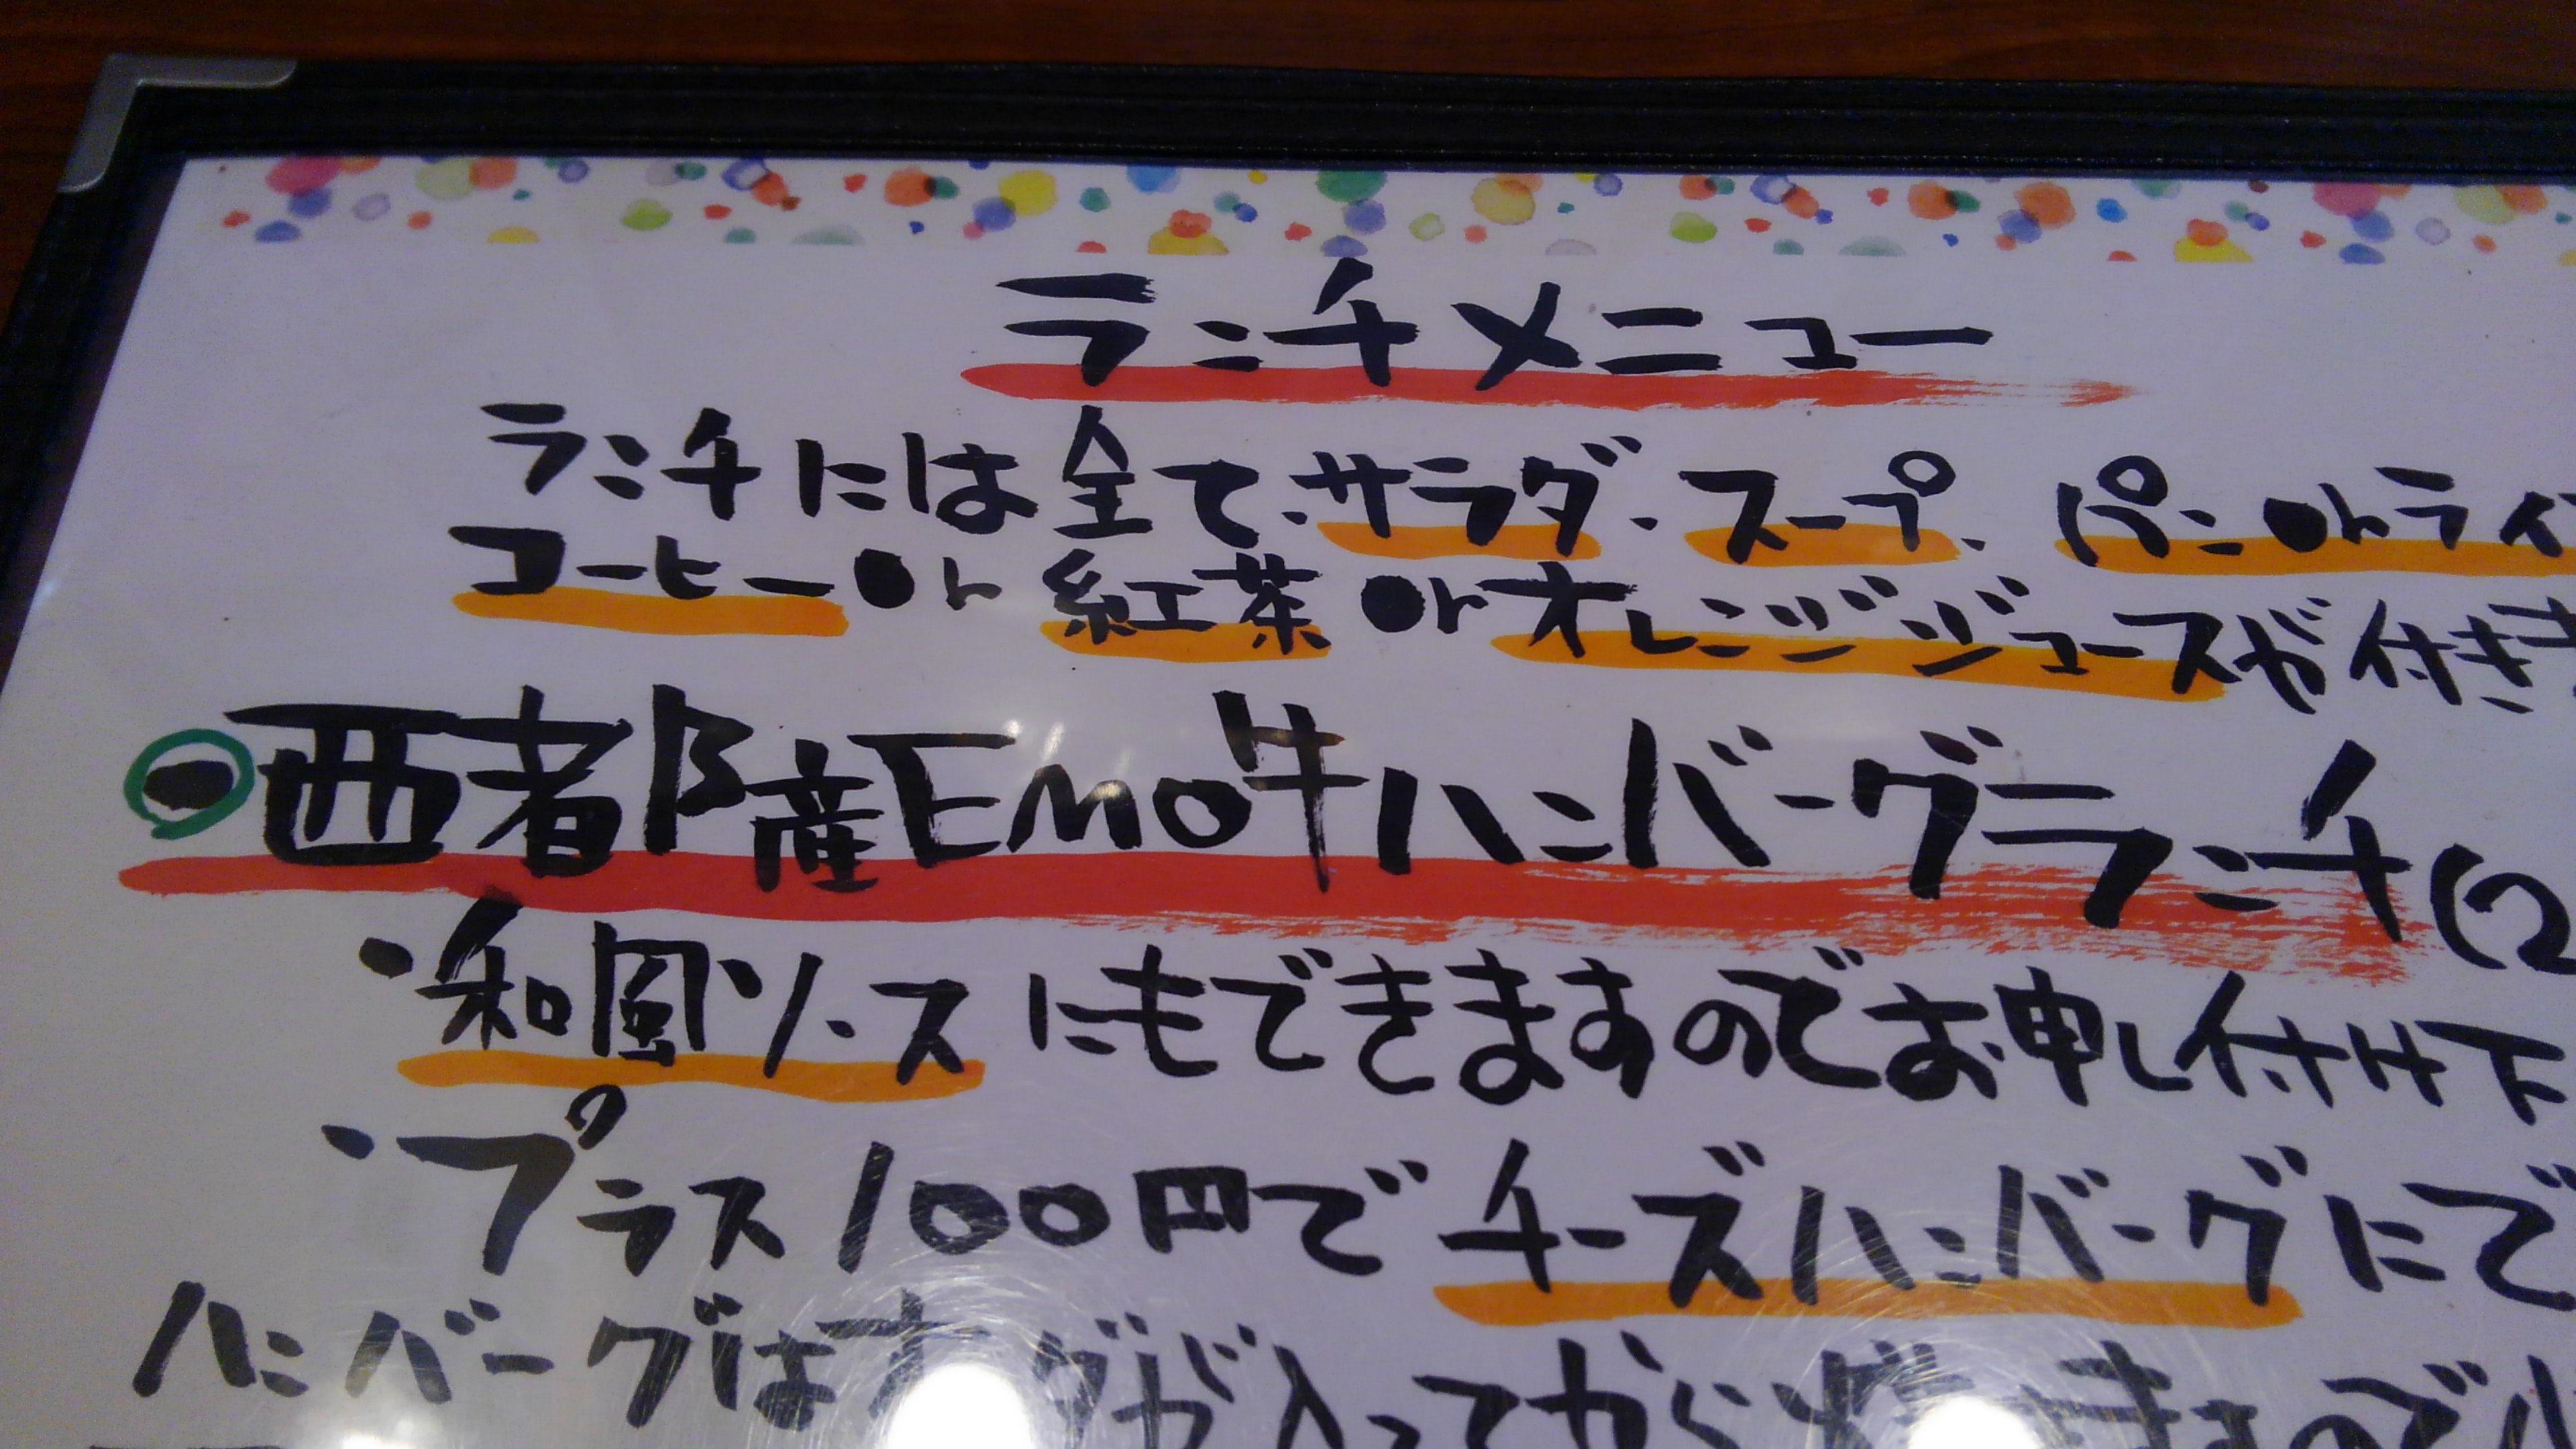 ランチメニュー
ランチには全て、サラダ、スープ、パンorライ
コーヒーor紅茶orオレンジジュースが付きま
●西都産EMO牛ハンバーグランチ(2
・和風ソースにもできますのでお申し付け下
・プラス100円でチーズハンバーグにで
ハンバーグはオーダーが入ってから焼きますので